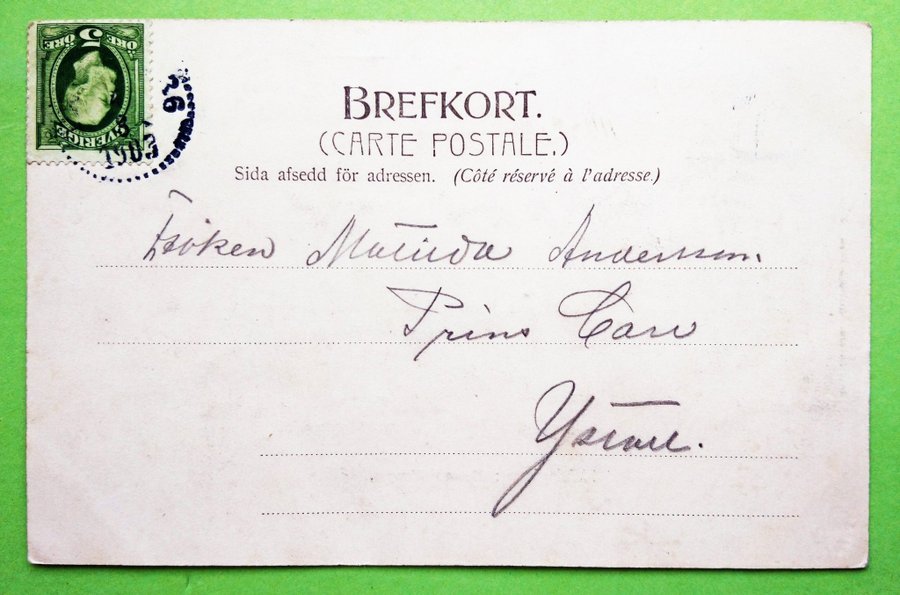 5
ÖRE ÖRE
SVERIGE
1903
BREFKORT.
(CARTE POSTALE.)
Sida afsedd för adressen. (Côté réservé à l'adresse.)
Fröken Matilda Andersson.
Prins Carl
Ystad.